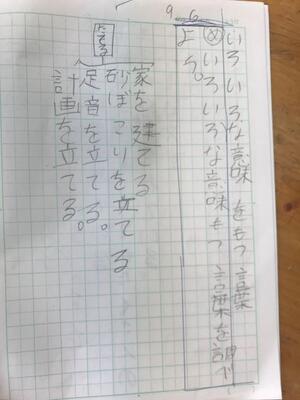 9 6
いろいろな意味をもつ言葉
めいろいろな意味もつ言葉を調べ
よう。
たてる
家を建てる
砂ぼこりを立てる
足音を立てる。
計画を立てる。